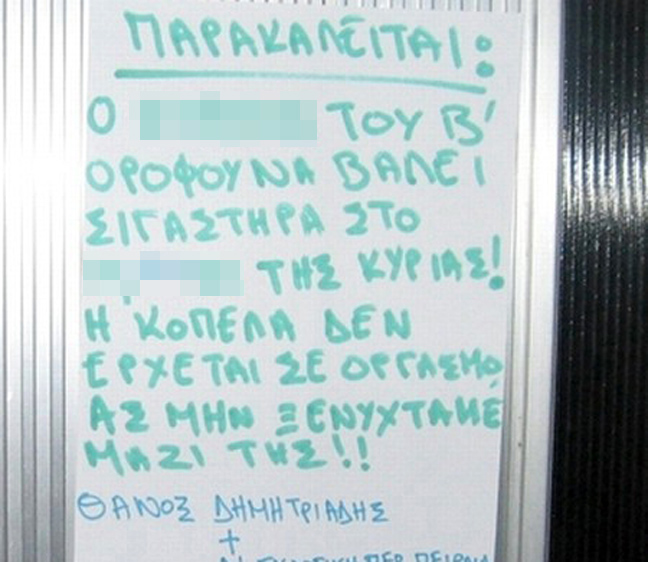 ΠΑΡΑΚΑΛΕΙΤΑΙ:
Ο ΤΟΥ Β'
ΟΡΟΦΟΥ ΝΑ ΒΑΛΕΙ
ΣΙΓΑΣΤΗΡΑ ΣΤΟ
ΤΗΣ ΚΥΡΙΑΣ!
Η ΚΟΠΕΛΑ ΔΕΝ
ΕΡΧΕΤΑΙ ΣΕ ΟΡΓΑΣΜΟ
ΑΣ ΜΗΝ ΞΕΝΥΧΤΑΜΕ
ΜΑΖΙ ΤΗΣ!!
ΘΑΝΟΣ ΔΗΜΗΤΡΙΑΔΗΣ
+